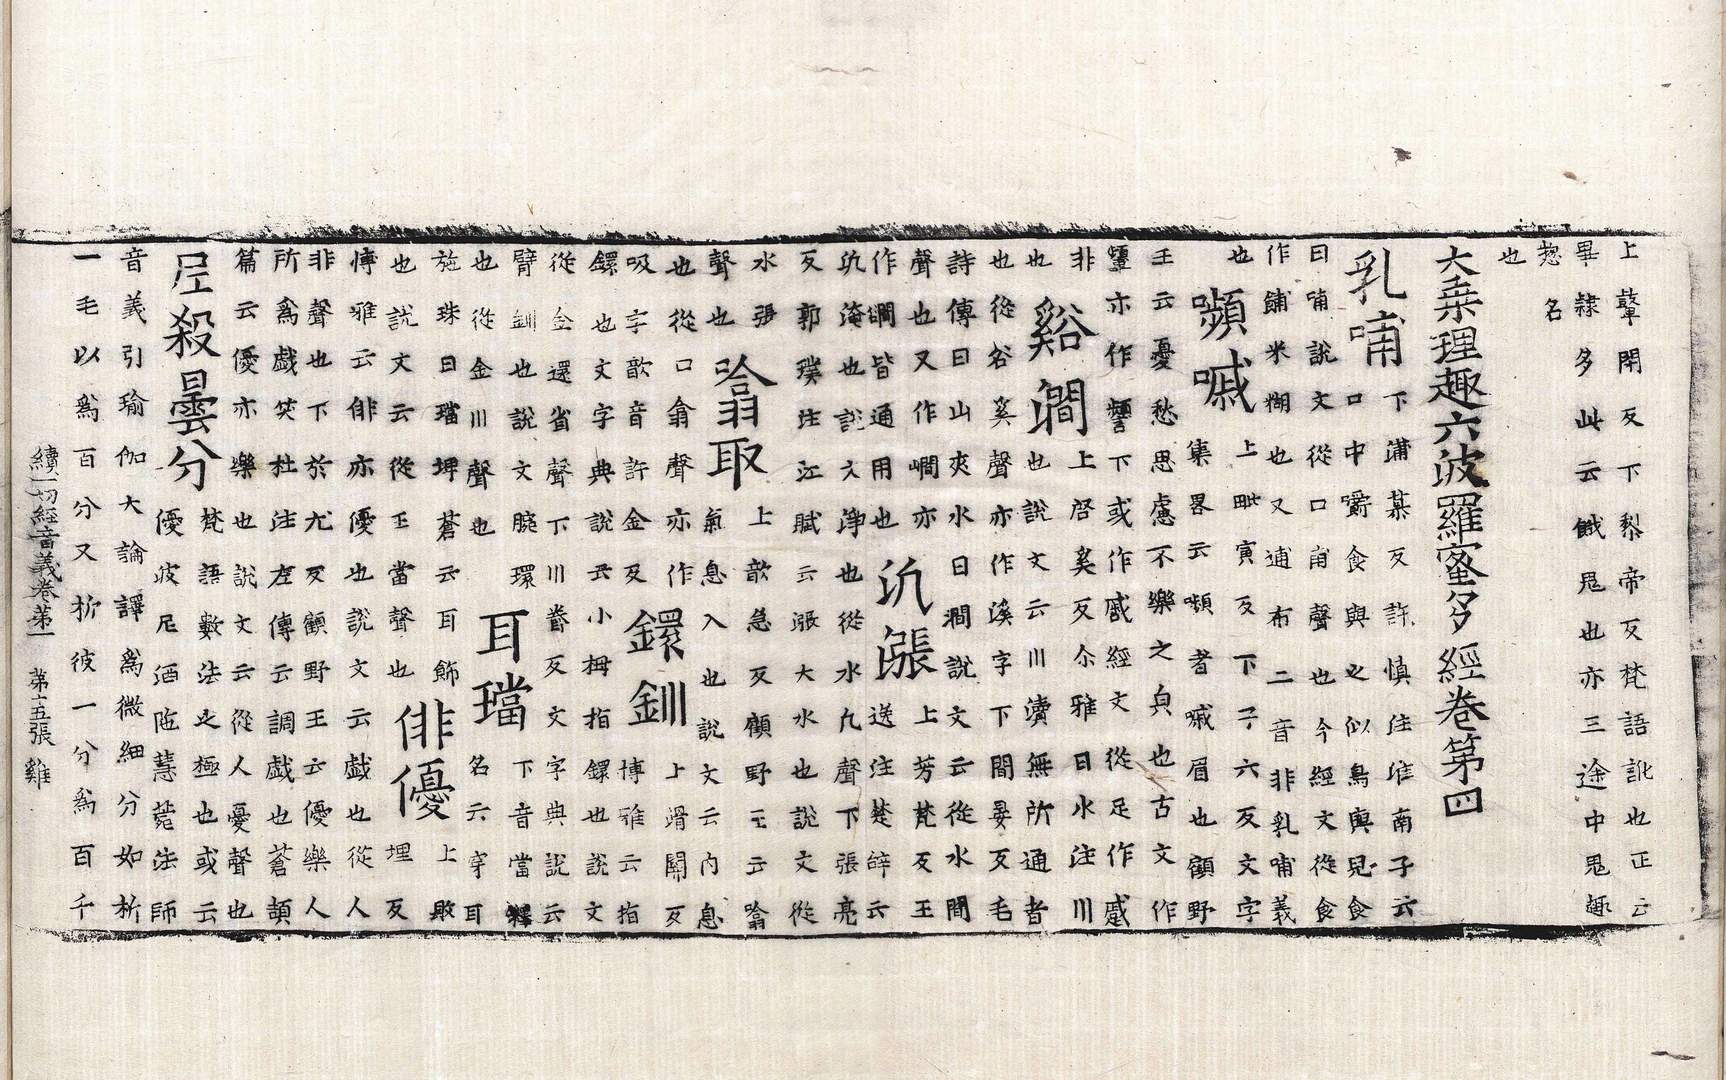 上鞞閇反下梨帝反梵語訛也正云
畢隷多此云餓鬼也亦三途中鬼趣
惣名
也
大乗理趣六波羅蜜多經卷第四
乳哺
下蒲某反許慎注淮南子云
口中嚼食與之似鳥與兒食
曰哺說文從口甫聲也今經文從食
作餔米糊也又逋布二音非乳哺義
也
嚬嘁
上毗寅反下子六反文字
集畧云嚬者嘁眉也顧野
王云憂愁思慮不樂之皃也古文作
顰亦作顰下或作慼經文從足作蹙
非
谿澗
上啓奚反尒雅曰水注川
也說文云川瀆無所通者
也從谷奚聲亦作溪字下間晏反毛
詩傳曰山夾水曰澗說文云從水間
聲也又作㵎亦
作㵎皆通用也
氿漲
上芳梵反王
逸注楚辭云
氿淹也說文浄也從水凢聲下張亮
反郭璞注江賦云漲大水也說文從
水張
聲也
噏取
上歆急反顧野王云噏
氣息入也說文云内息
也從口翕聲亦作
吸字歆音許金反
鐶釧
上滑關反
博雅云指
鐶也文字典說云小拇指鐶也說文
從金還省聲下川眷反文字典說云
臂釧也說文腕環
也從金川聲也
耳璫
下音當釋
名云穿耳
施珠曰璫埤蒼云耳飾
也說文云從玉當聲也
俳優
上敗
埋反
博雅云俳亦優也說文云戲也從人
非聲也下於尤反顧野王云優樂人
所為戲笑杜注左傳云調戲也蒼頡
篇云優亦樂也說文云從人憂聲也
尼殺曇分
梵語數法之極也或云
優波尼洒陁慧菀法師
音義引瑜伽大論譯為微細分如析
一毛以為百分又析彼一分為百千
續一切經音義卷第一 第十五張 雞